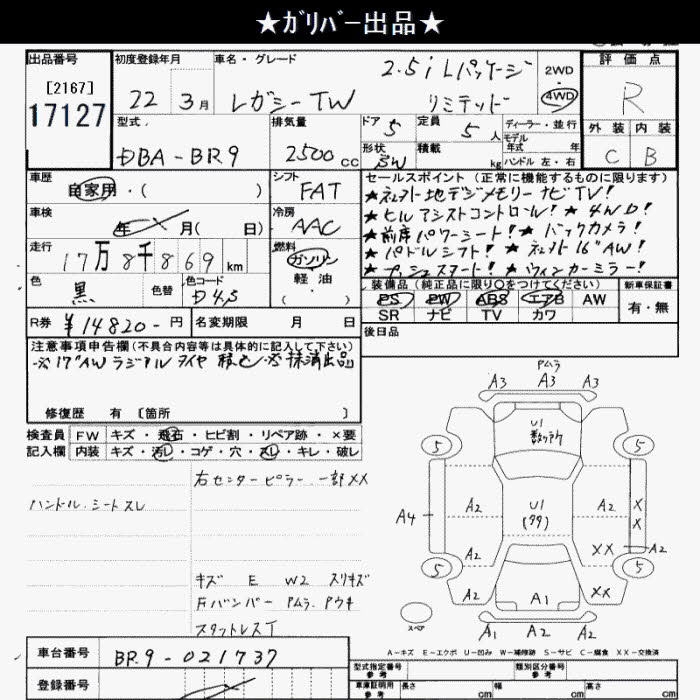 ★ガリバー出品★
出品番号
[2167]
17127
初度登録年月
22年 3月
車名・グレード
2.5i Lパッケージ
レガシーTW リミテッド
2WD
4WD
評価点
R
外装 内装
C B
型式
DBA-BR9
排気量
2500 cc
ドア 5
定員 5人
形状 SW
積載 kg
ディーラー・並行
モデル
年式 年
ハンドル 左・右
車歴
自家用・( )
シフト
FAT
車検
年 月( 日)
冷房
AAC
走行
17万8千869 km
燃料
ガソリン
軽油
( )
色
黒
色替
色コード
D4S
R券 ¥14820-円
名変期限 月 日
セールスポイント(正常に機能するものに限ります)
★純正地デジメモリーナビTV!
★ヒルアシストコントロール! ★4WD!
★前席パワーシート! ★バックカメラ!
★パドルシフト! ★純正16"AW!
★プッシュスタート! ★ウィンカーミラー!
装備品(純正品に限り○をつけてください)
PS PW ABS エアB AW
SR ナビ TV カワ
新車保証書
有・無
後日品
注意事項申告欄(不具合内容等は具体的に記入して下さい)
※17"AWラジアルタイヤ積込 ※抹消出品
修復歴 有 [箇所 ]
検査員 FW キズ・飛石・ヒビ割・リペア跡・×要
記入欄 内装 キズ・汚レ・コゲ・穴・スレ・キレ・破レ
右センターピラー 一部XX
ハンドル.シートスレ
キズ E W2 スリキズ
Fバンパー Pムラ.Pウキ
スタットレスT
Pムラ
A3 A3 A3
U1
数ヶ所
5 5
A2 A2 X
A4 U1 X
A2 XX A2
5 5
A2 A1 XX
A1 A2 A2
スペア
A-キズ E-エクボ U-凹み W-補修跡 S-サビ C-腐食 XX-交換済
車台番号 BR9-021737
登録番号
型式指定番号
参考
類別区分番号
参考
車庫証明用
参考
長さ cm 幅 cm 高さ cm